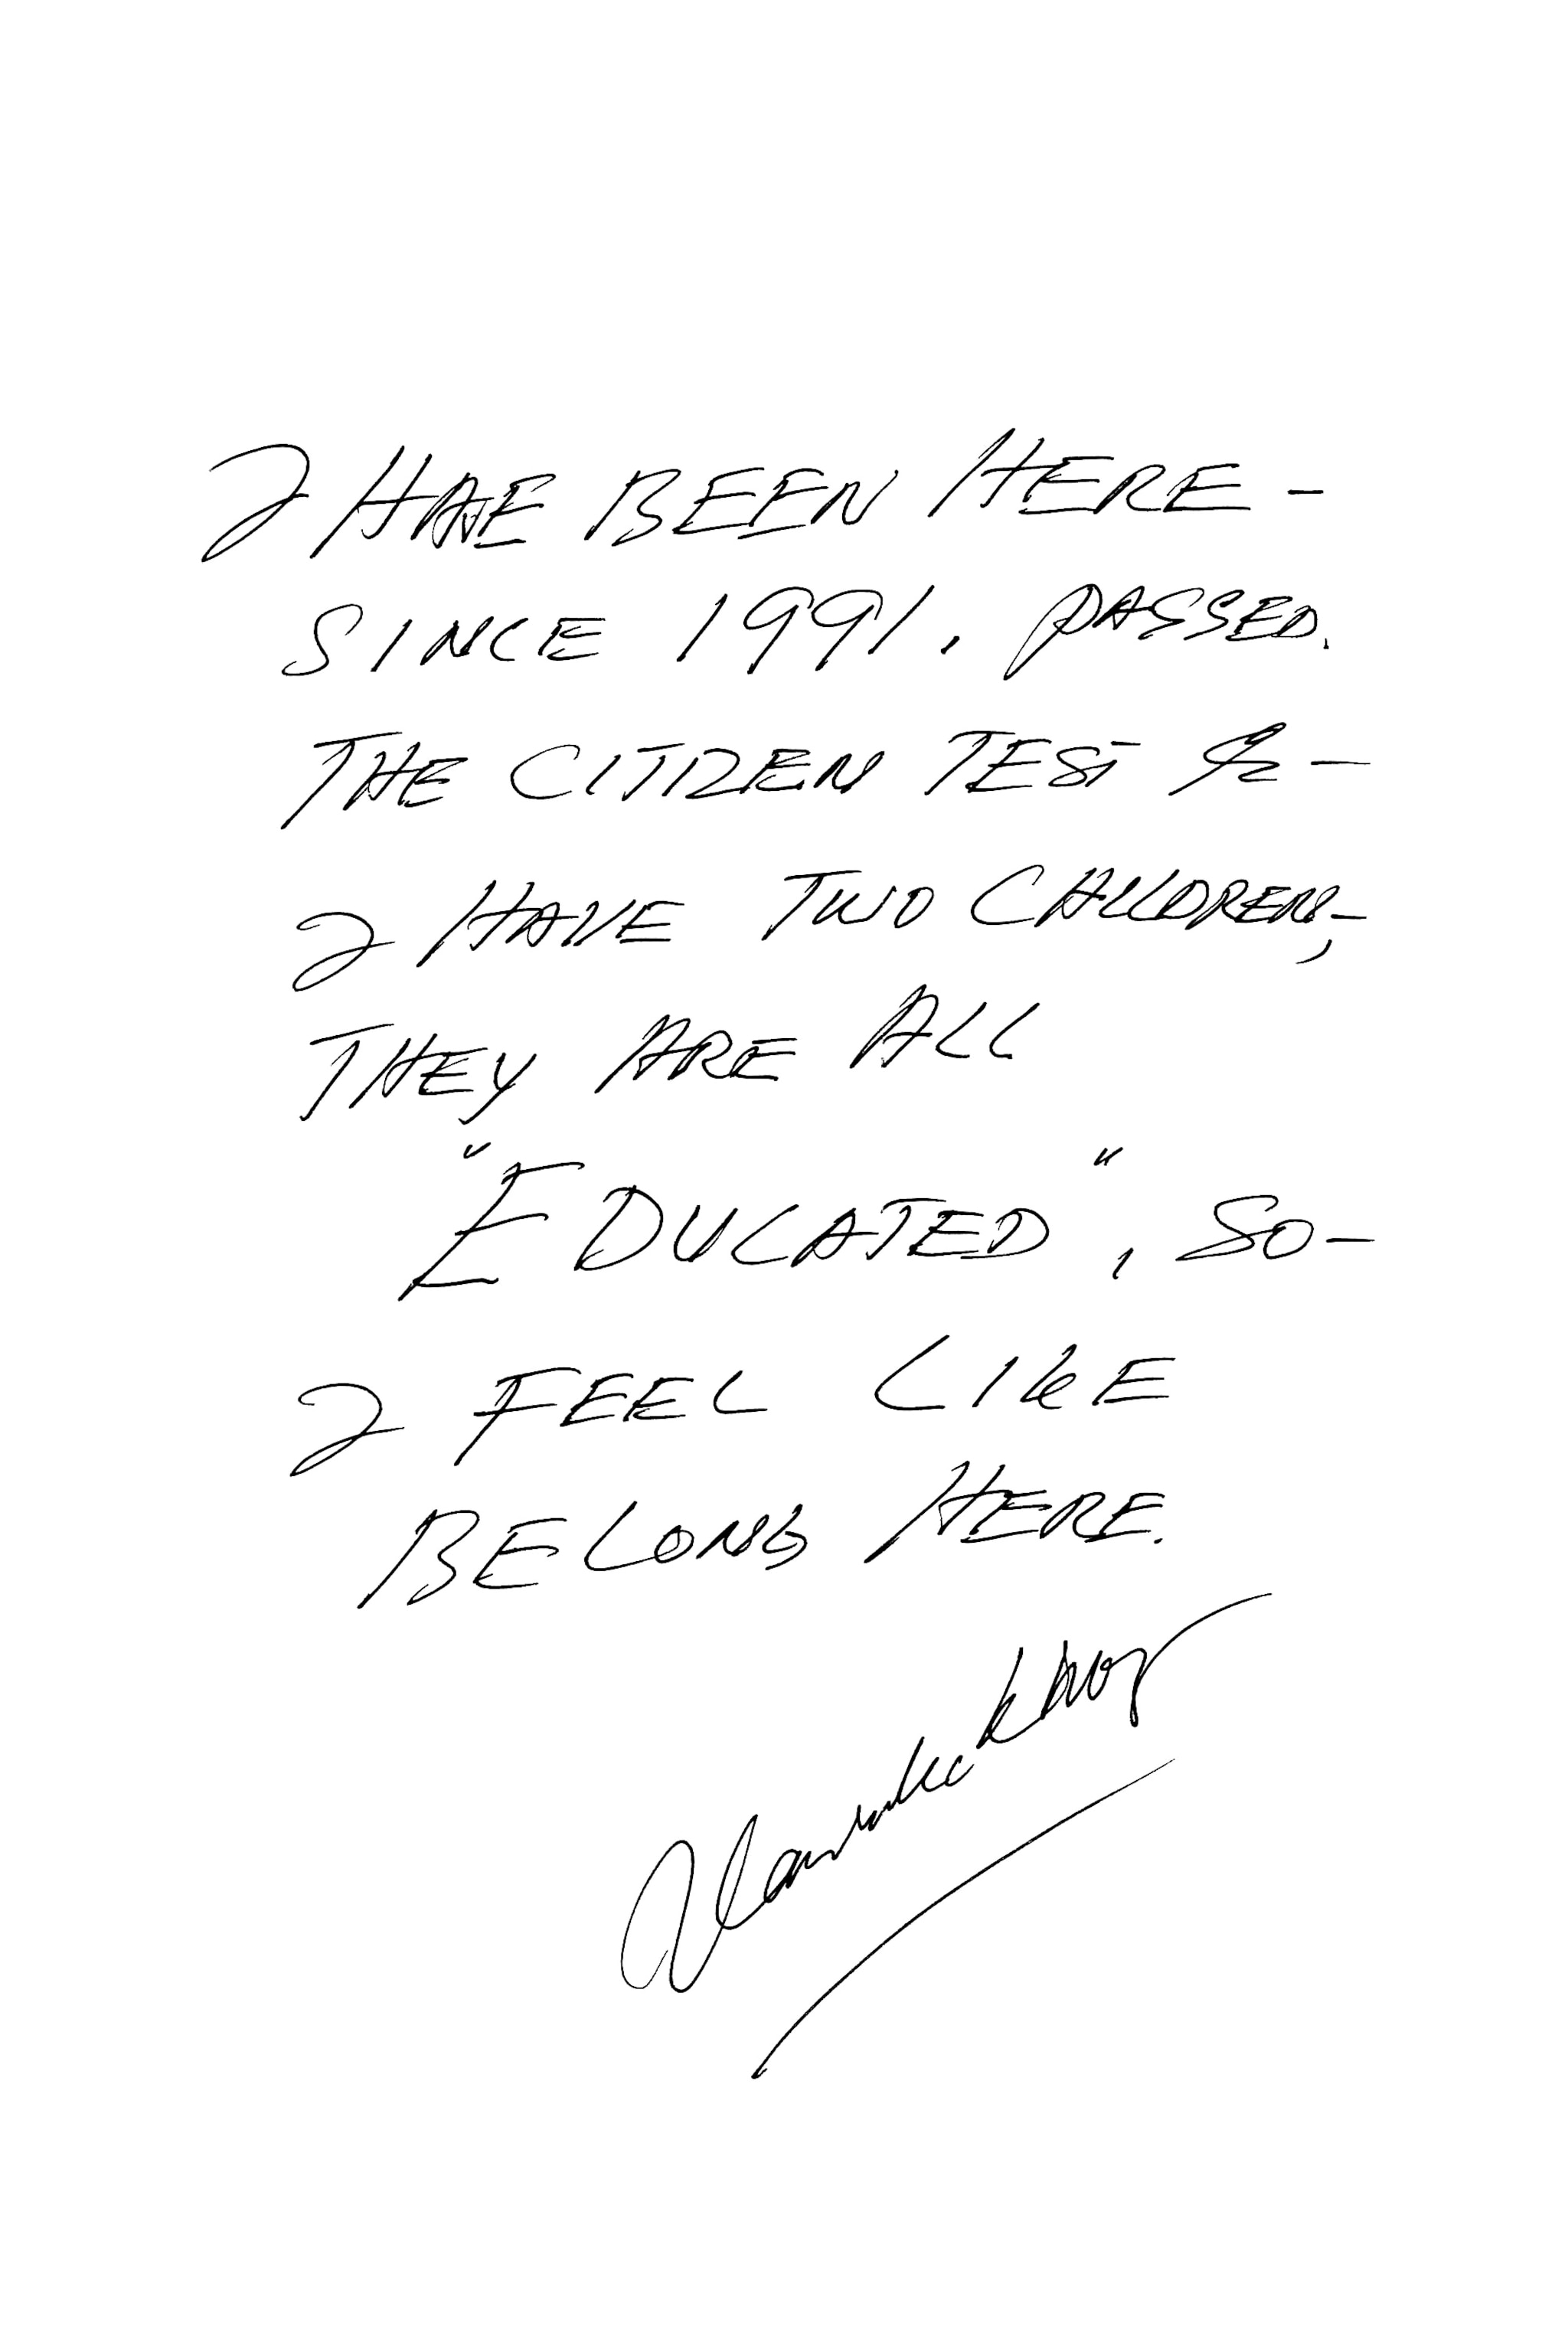 I HAVE BEEN HERE -
SINCE 1991. PASSED.
THE CITIZEN TEST & -
I HAVE TWO CHILDREN, -
THEY ARE ALL
"EDUCATED", SO -
I FEEL LIKE
BELONG HERE.